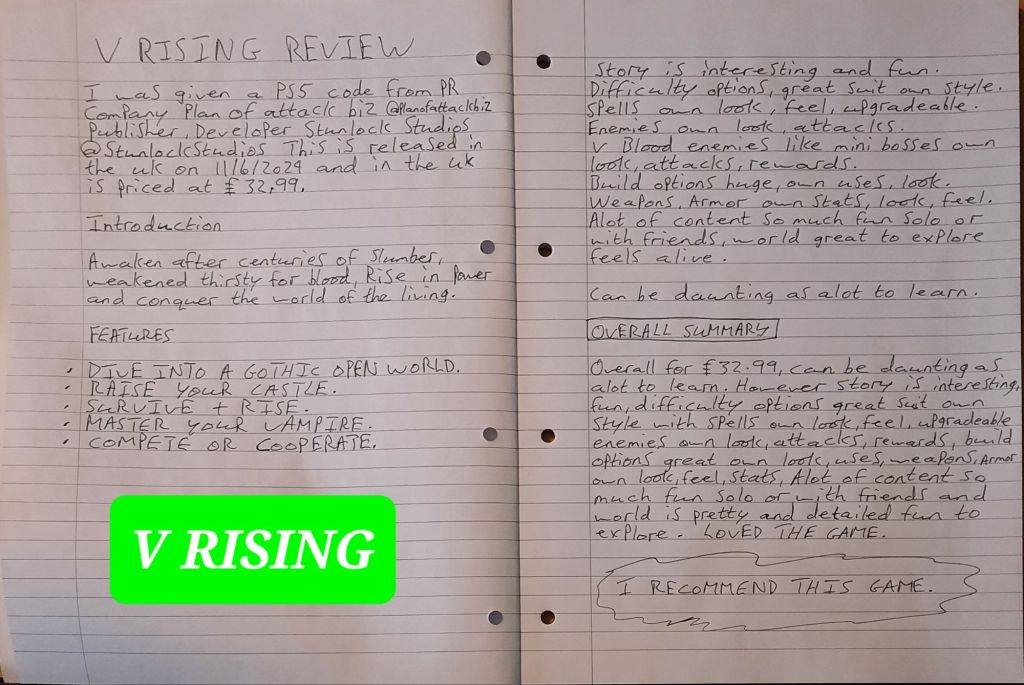 V RISING REVIEW
I was given a PS5 code from PR
Company Plan of attack biz @Planofattackbiz
Publisher, Developer Stunlock Studios
@StunlockStudios This is released in
the uk on 11/6/2024 and in the uk
is priced at £32.99.
Introduction
Awaken after centuries of slumber,
weakened thirsty for blood, Rise in Power
and conquer the world of the living.
FEATURES
• DIVE INTO A GOTHIC OPEN WORLD.
• RAISE YOUR CASTLE.
• SURVIVE + RISE.
• MASTER YOUR VAMPIRE.
• COMPETE OR COOPERATE.
V RISING
Story is interesting and fun.
Difficulty options, great suit own style.
Spells own look, feel, upgradeable.
Enemies own look, attacks.
V Blood enemies like mini bosses own
look, attacks, rewards.
Build options huge, own uses, look.
Weapons, Armor own stats, look, feel.
Alot of content so much fun solo or
with friends, world great to explore
feels alive.
Can be daunting as alot to learn.
OVERALL SUMMARY
Overall for £32.99, can be daunting as
alot to learn. However story is interesting,
fun, difficulty options great suit own
style with spells own look, feel, upgradeable
enemies own look, attacks, rewards, build
options great own look, uses, weapons, Armor
own look, feel, stats, Alot of content so
much fun solo or with friends and
world is pretty and detailed fun to
explore. LOVED THE GAME.
I RECOMMEND THIS GAME.